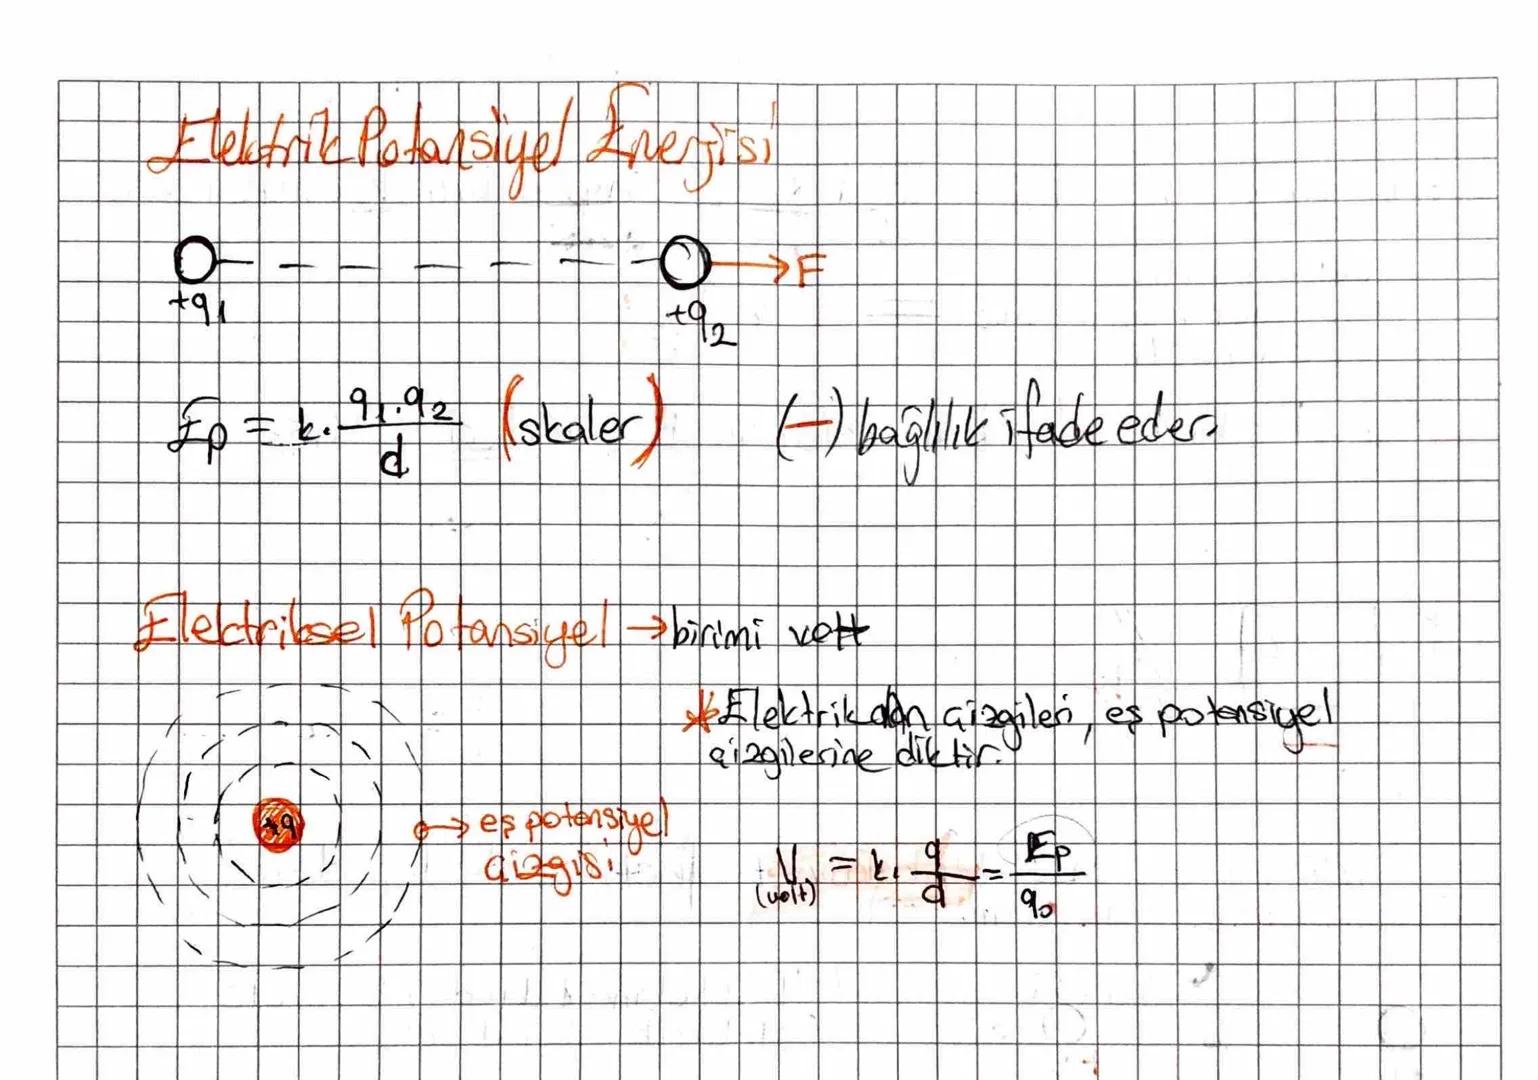 Elektrik Potansiyel Enerjisi
F
+q₁ +q₂
Ep = k. q₁.q₂ / d (skaler) (-) bağlılık ifade eder.
Elektriksel Potansiyel → birimi volt
* Elektrik alan çizgileri, eş potansiyel
çizgilerine diktir.
+q
→ eş potansiyel
çizgisi
V = k. q / d = Ep / q₀
(volt)